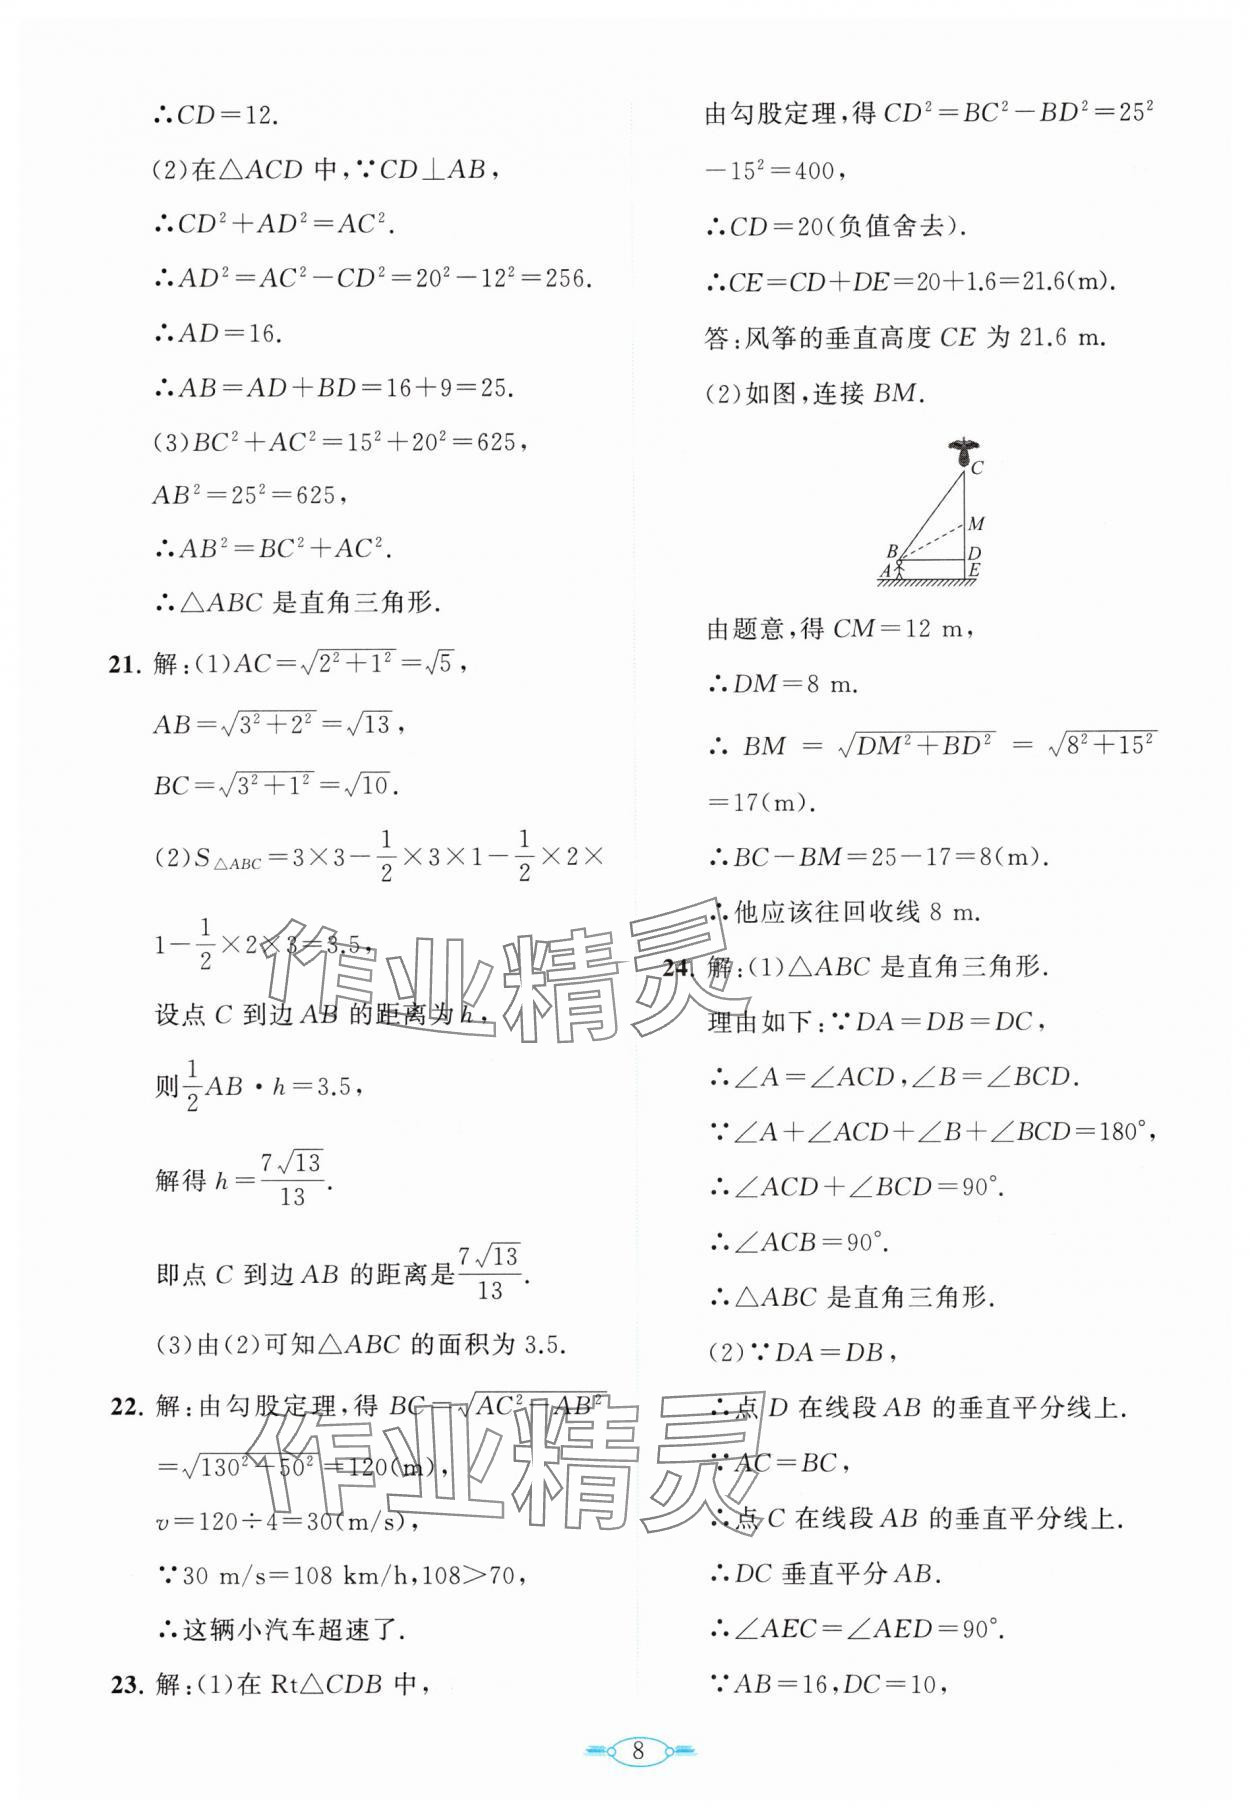 ∴CD=12.
(2)在△ACD 中,∵CD⊥AB,
∴CD²+AD²=AC².
∴AD²=AC²-CD²=20²-12²=256.
∴AD=16.
∴AB=AD+BD=16+9=25.
(3)BC²+AC²=15²+20²=625,
AB²=25²=625,
∴AB²=BC²+AC².
∴△ABC 是直角三角形.
21. 解:(1)AC=√(2²+1²)=√5,
AB=√(3²+2²)=√13,
BC=√(3²+1²)=√10.
(2)S△ABC=3×3-1/2×3×1-1/2×2×
1-1/2×2×3=3.5,
设点 C 到边 AB 的距离为 h,
则1/2AB·h=3.5,
解得 h=7√13/13.
即点 C 到边 AB 的距离是7√13/13.
(3)由(2)可知△ABC 的面积为 3.5.
22. 解:由勾股定理,得 BC=√(AC²-AB²)
=√(130²-50²)=120(m),
v=120÷4=30(m/s),
∵30 m/s=108 km/h,108>70,
∴这辆小汽车超速了.
23. 解:(1)在 Rt△CDB 中,
由勾股定理,得 CD²=BC²-BD²=25²
-15²=400,
∴CD=20(负值舍去).
∴CE=CD+DE=20+1.6=21.6(m).
答:风筝的垂直高度 CE 为 21.6 m.
(2)如图,连接 BM.
C
M
B
D
A
E
由题意,得 CM=12 m,
∴DM=8 m.
∴ BM = √(DM²+BD²) = √(8²+15²)
=17(m).
∴BC-BM=25-17=8(m).
∴他应该往回收线 8 m.
24. 解:(1)△ABC 是直角三角形.
理由如下:∵DA=DB=DC,
∴∠A=∠ACD,∠B=∠BCD.
∵∠A+∠ACD+∠B+∠BCD=180°,
∴∠ACD+∠BCD=90°.
∴∠ACB=90°.
∴△ABC 是直角三角形.
(2)∵DA=DB,
∴点 D 在线段 AB 的垂直平分线上.
∵AC=BC,
∴点 C 在线段 AB 的垂直平分线上.
∴DC 垂直平分 AB.
∴∠AEC=∠AED=90°.
∵AB=16,DC=10,
8
作业精灵
作业精灵